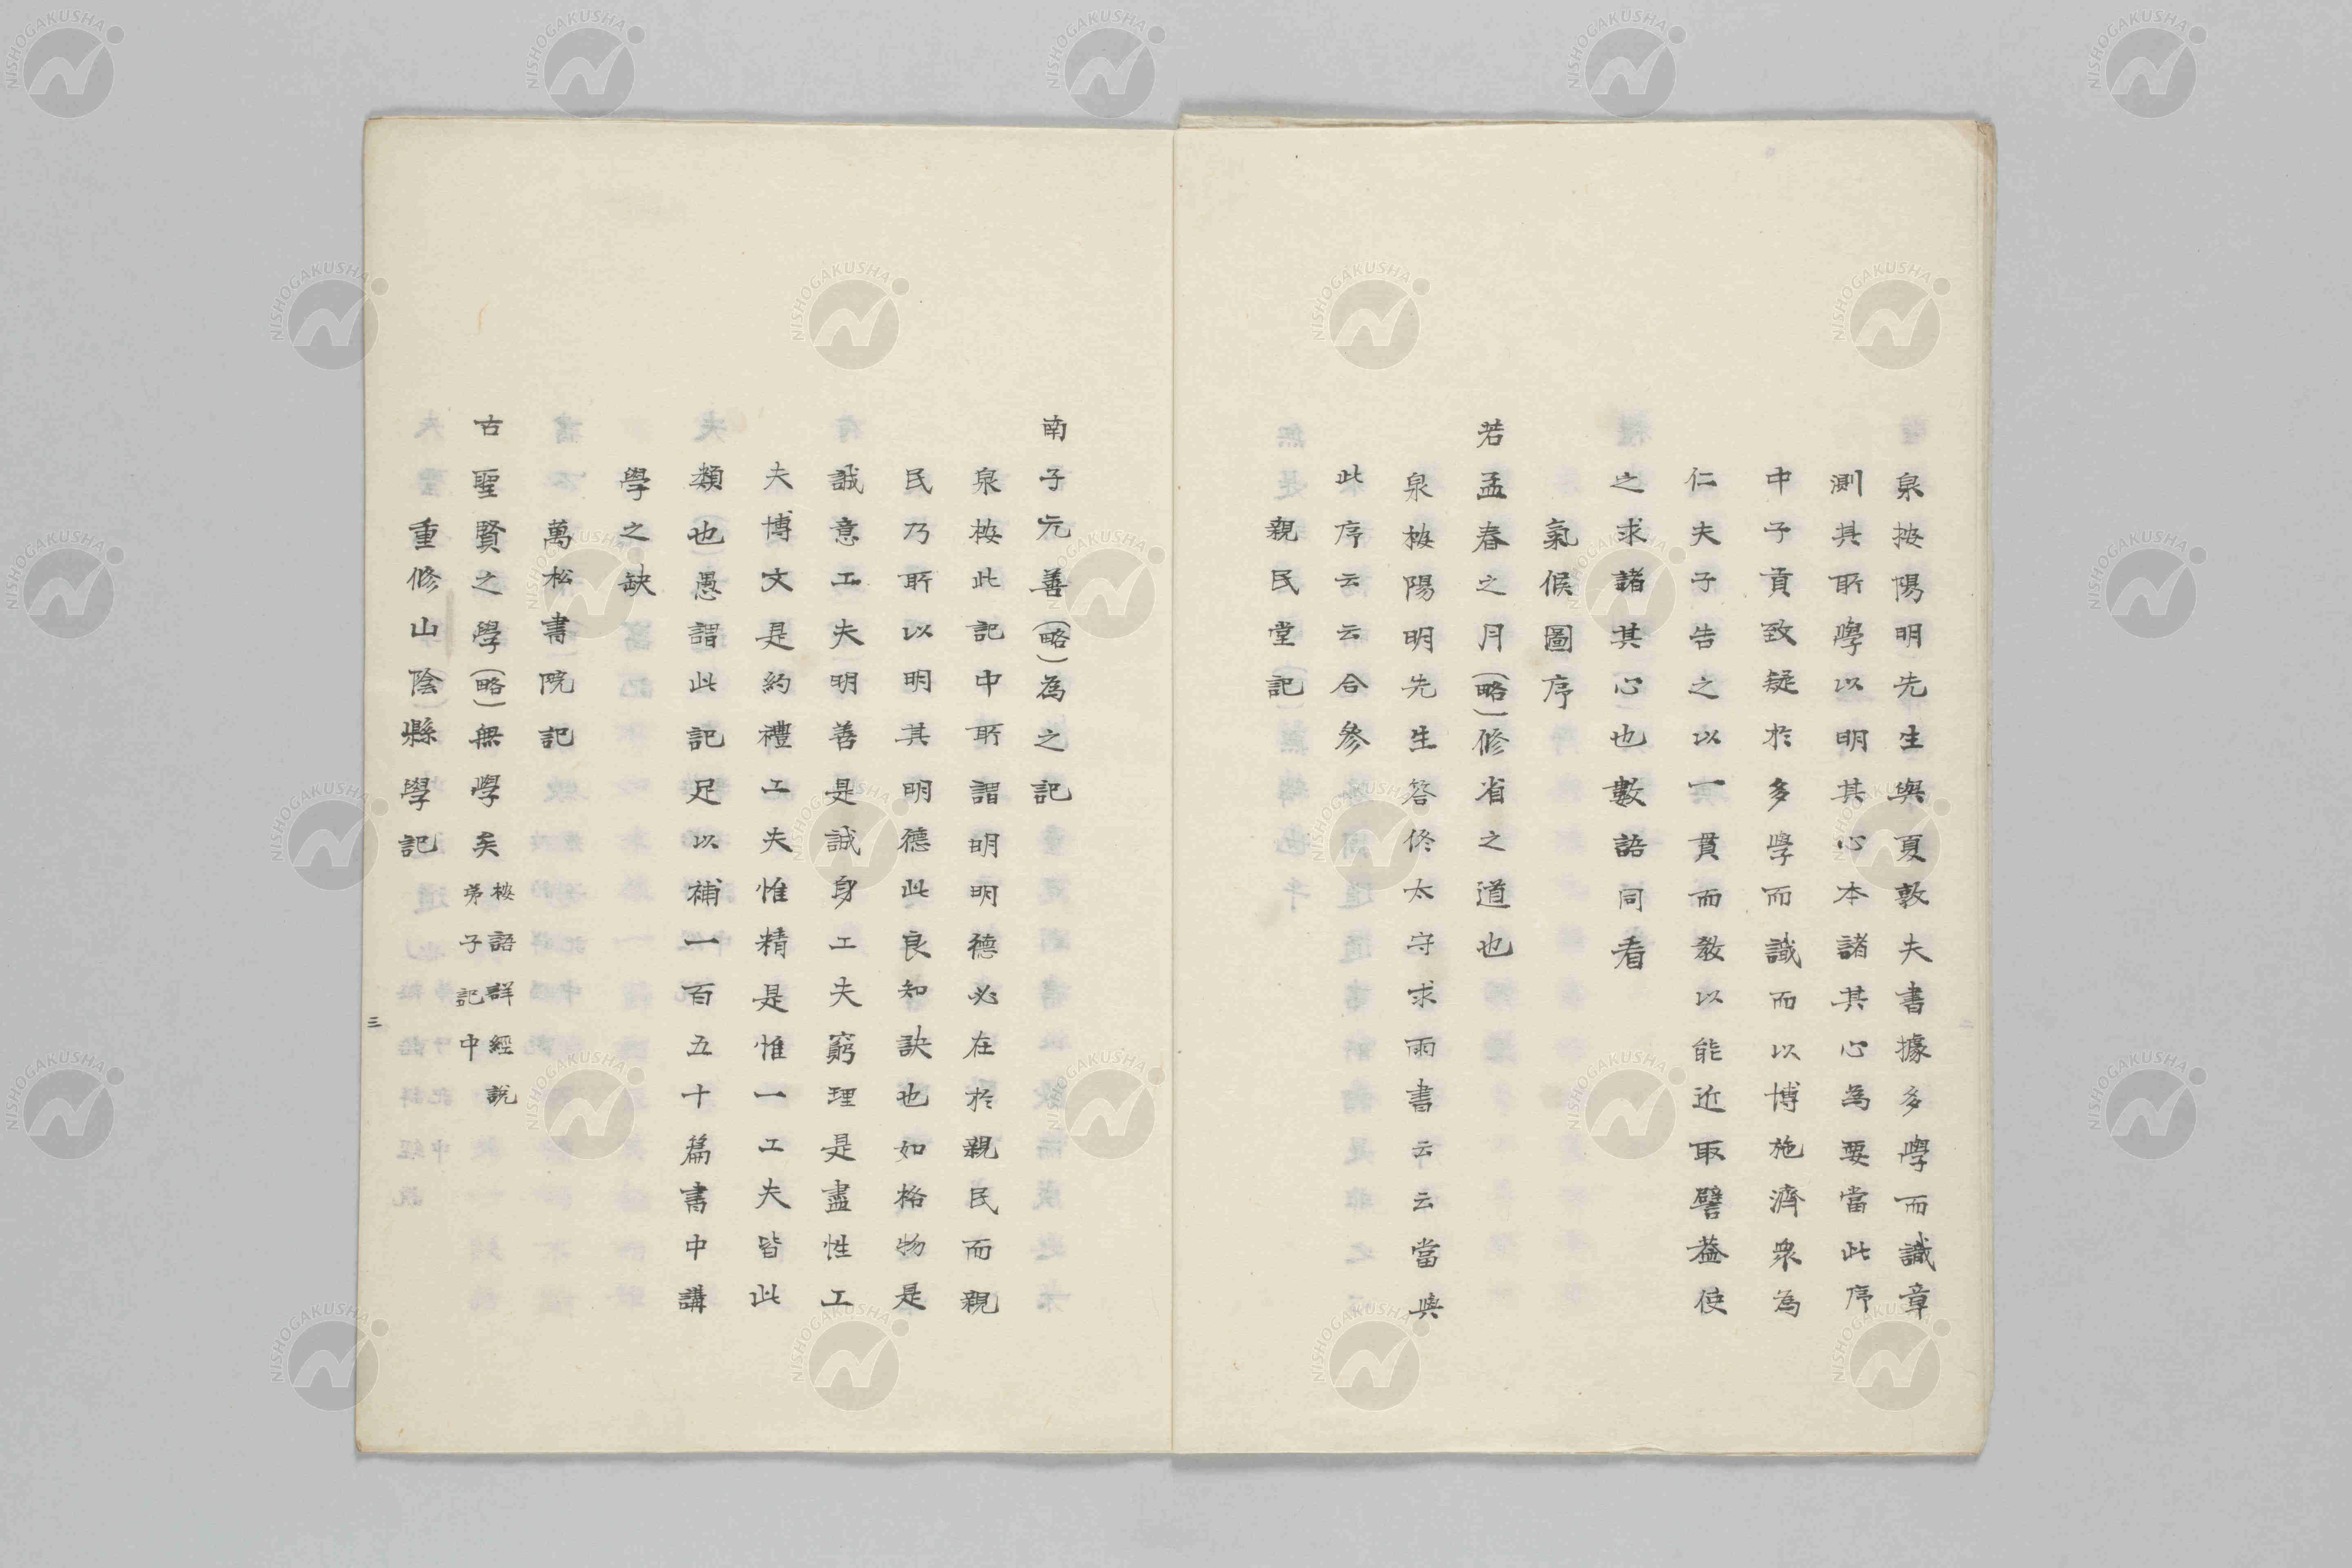 泉按陽明先生與夏敦夫書據多學而識章
測其所學以明其心本諸其心為要當此序
中子貢致疑於多學而識而以博施濟衆為
仁夫子告之以一貫而教以能近取譬蓋使
之求諸其心也數語同看
氣候圖序
若孟春之月(略)修省之道也
泉按陽明先生答佟太守求雨書云云當與
此序云云合參
親民堂記
南子元善(略)為之記
泉按此記中所謂明明德必在於親民而親
民乃所以明其明德此良知訣也如格物是
誠意工夫明善是誠身工夫窮理是盡性工
夫博文是約禮工夫惟精是惟一工夫皆此
類也愚謂此記足以補一百五十篇書中講
學之缺
萬松書院記
古聖賢之學(略)無學矣
按語詳經說
弟子記中
重修山陰縣學記
三
NISHOGAKUSHA